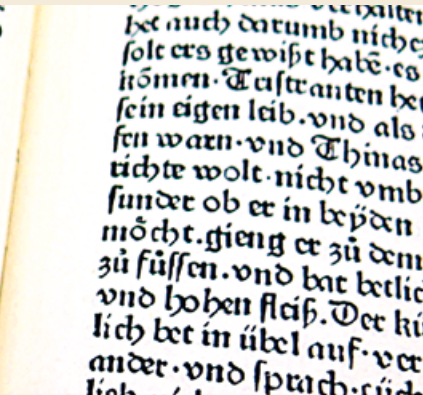 het auch darumb nicht
solt ers gewißt habē·es
kōmen·Tristranten het
sein eigen leib.vnd als
sen warn·vnd Thinas
richte wolt·nicht vmb
sunder ob er in beÿden
möcht.gieng er zů dem
zů fůssen.vnd bat betlic
vnd hohen fleiß.Der kü
lich bet in übel auf·ver
ander·vnd sprach·